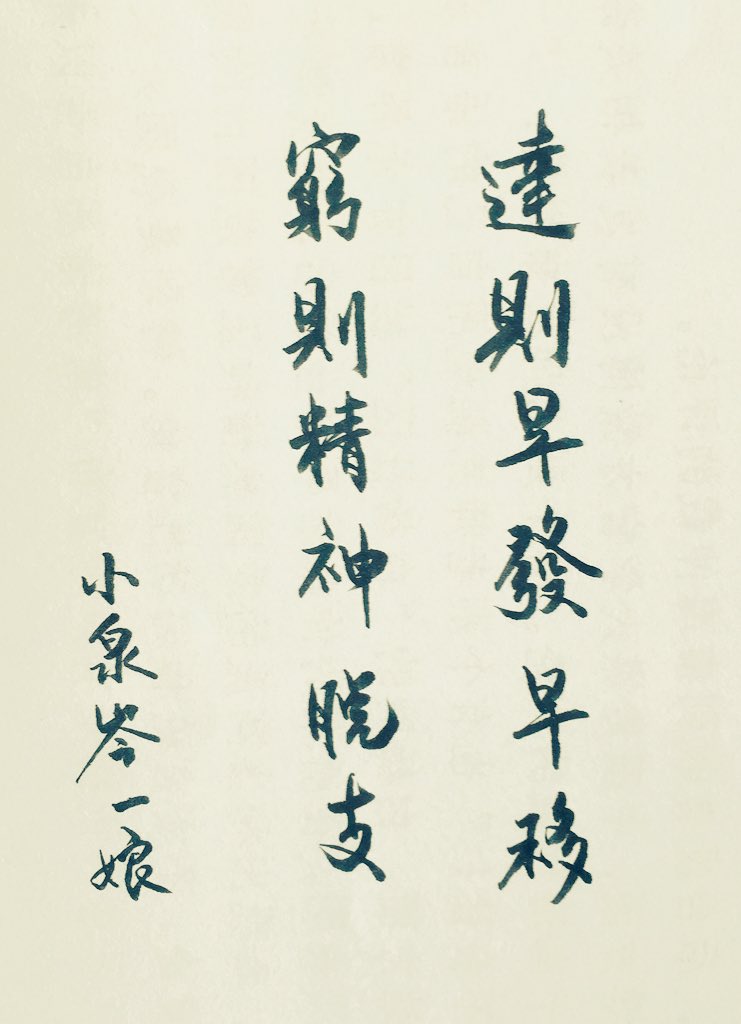 達則早發早移
窮則精神脱支
小泉岑一娘